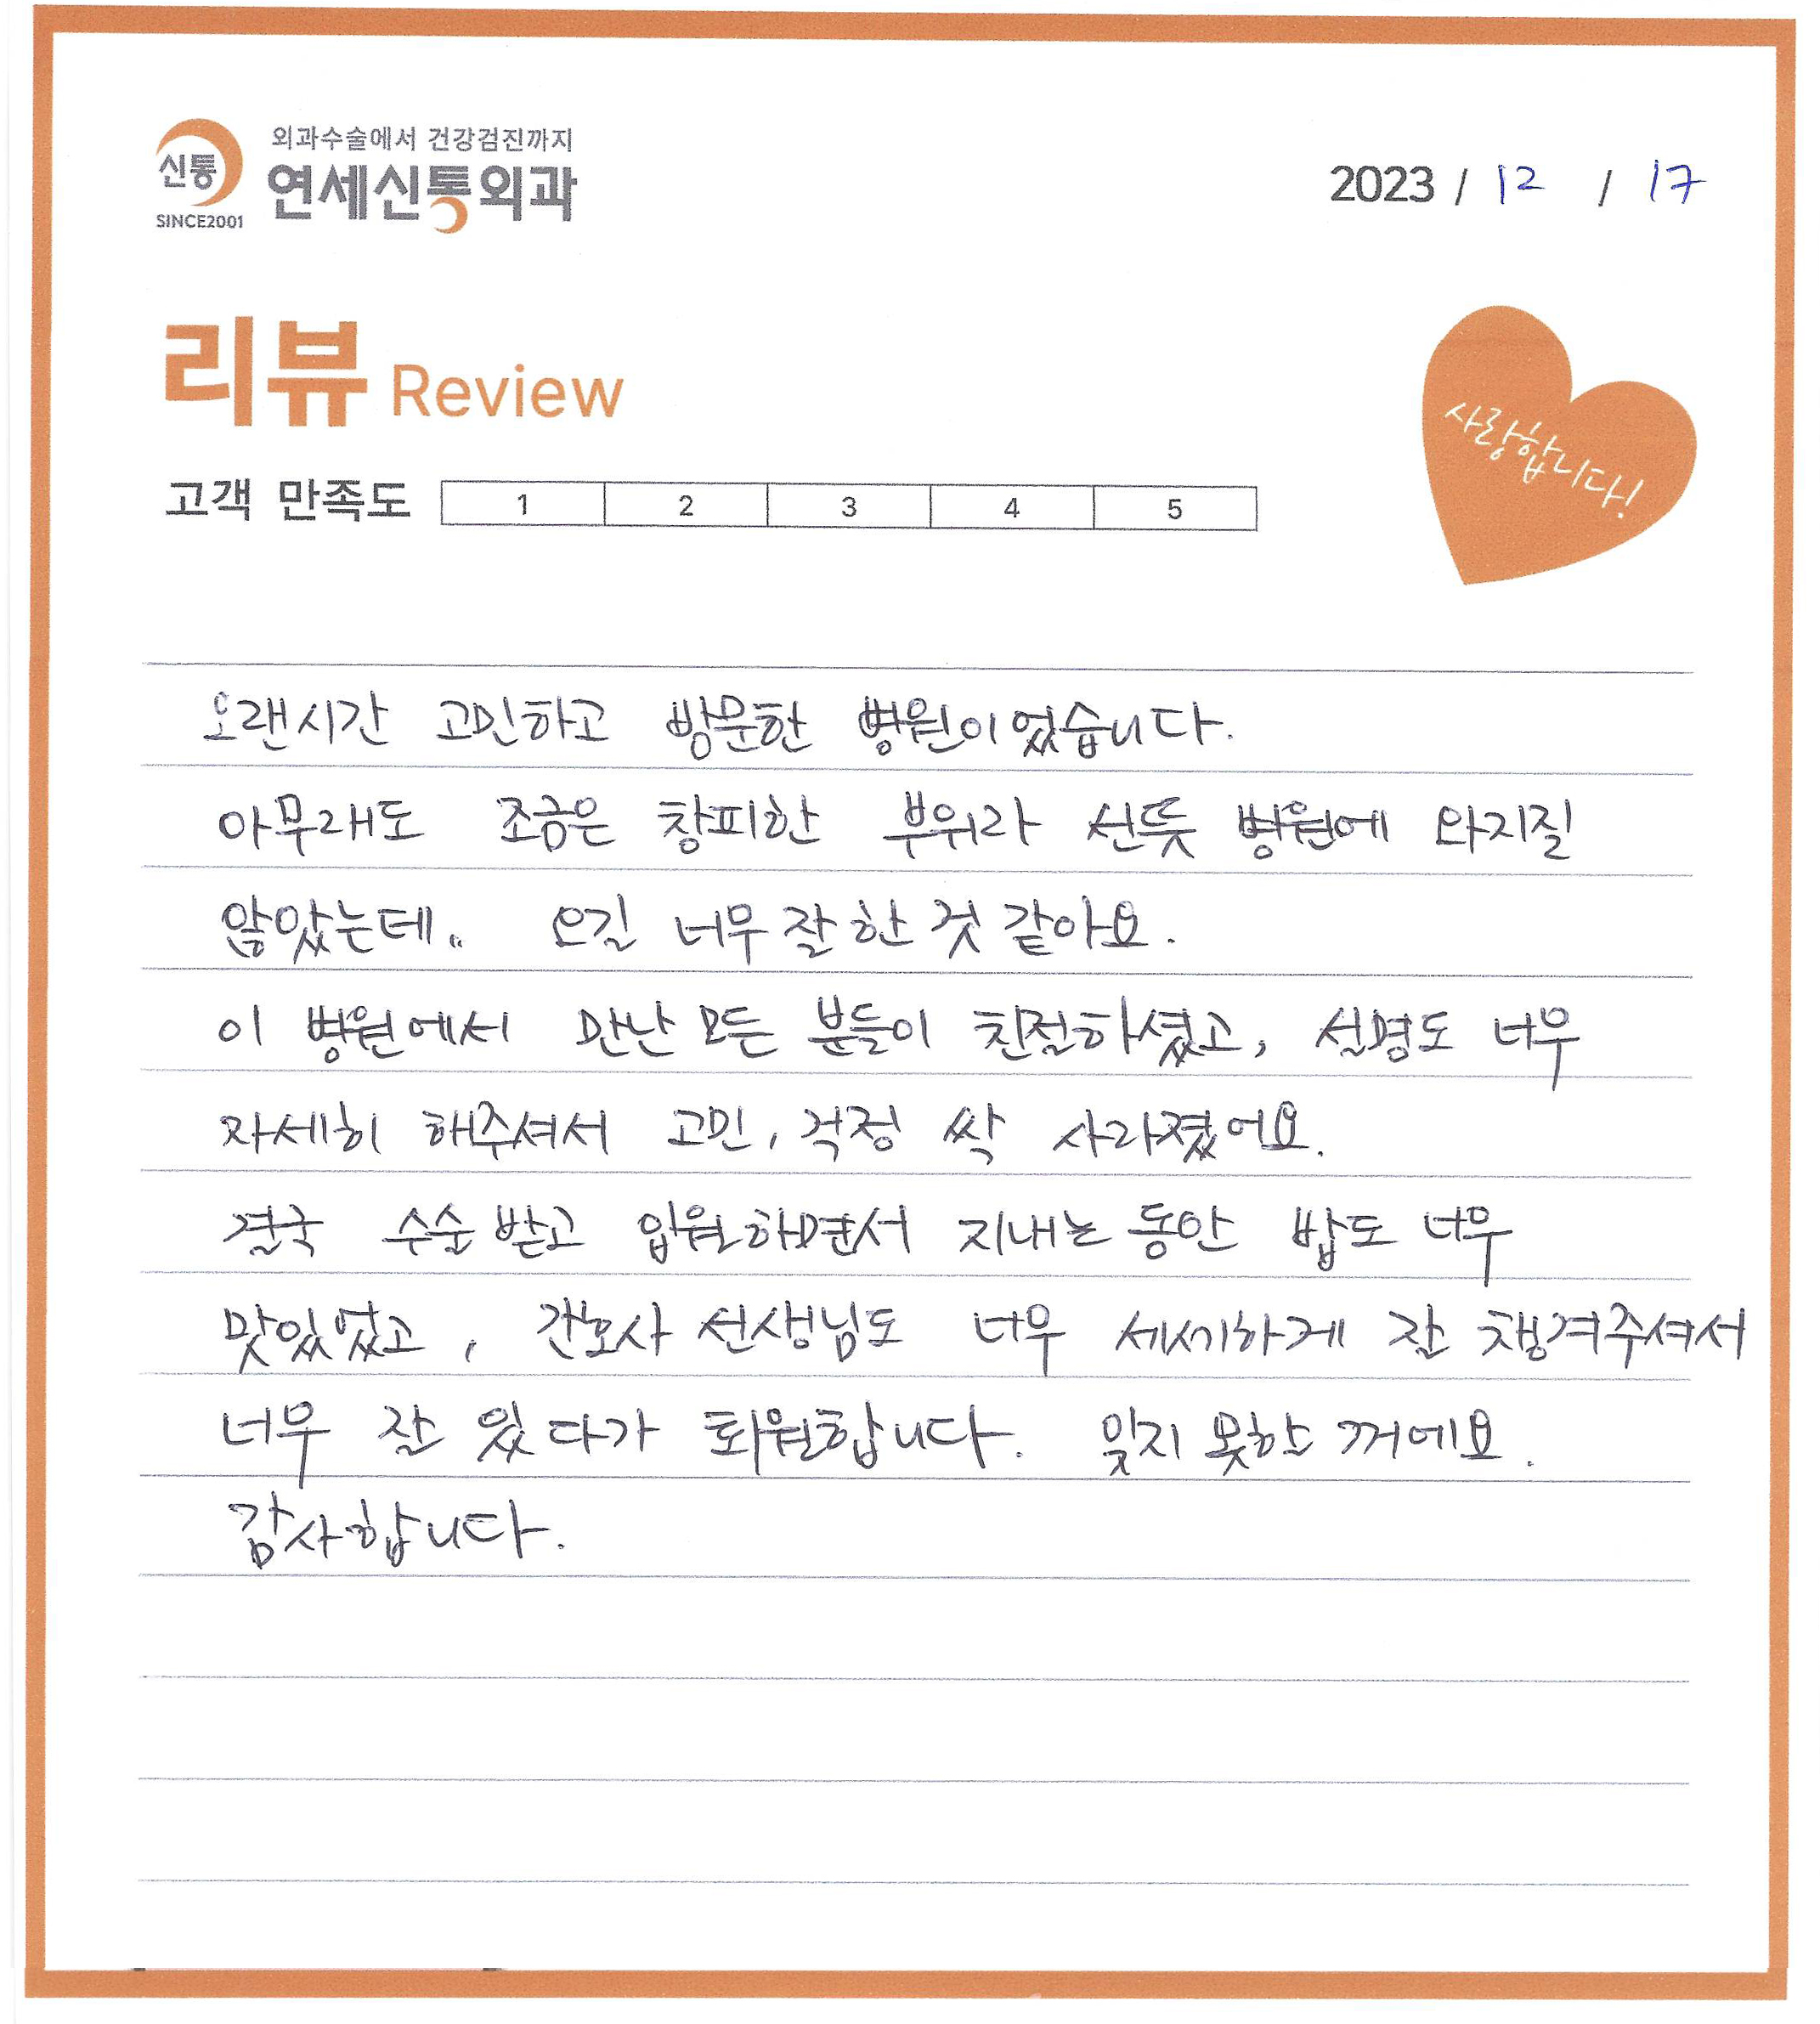 외과수술에서 건강검진까지
신통 연세신통외과
SINCE2001
2023 / 12 / 17
리뷰 Review
사랑합니다!
고객 만족도 1 2 3 4 5
오랜시간 고민하고 방문한 병원이었습니다.
아무래도 조금은 창피한 부위라 선뜻 병원에 와지질
않았는데.. 오길 너무 잘한 것 같아요.
이 병원에서 만난 모든 분들이 친절하셨고, 설명도 너무
자세히 해주셔서 고민, 걱정 싹 사라졌어요.
결국 수술 받고 입원하면서 지내는 동안 밥도 너무
맛있었고, 간호사 선생님도 너무 세세하게 잘 챙겨주셔서
너무 잘 있다가 퇴원합니다. 잊지 못할 꺼에요.
감사합니다.